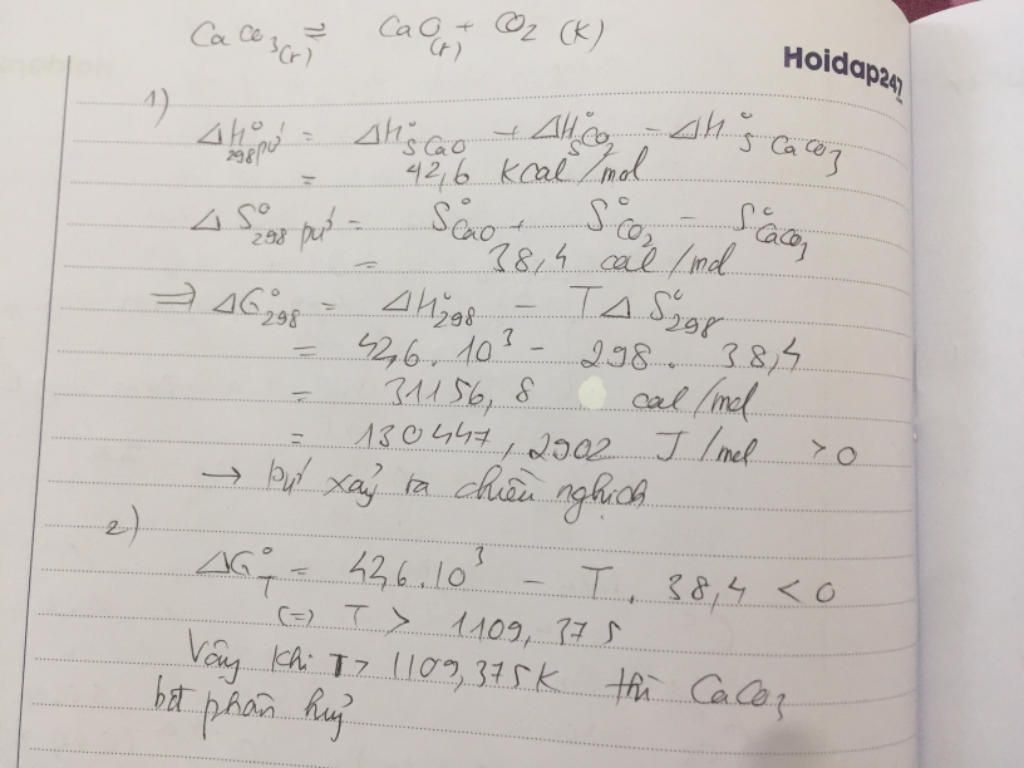 CaCO3(r) ⇌ CaO(r) + CO2 (K)
Hoidap247
1)
ΔH°298pứ = ΔH°S CaO + ΔH°S CO2 - ΔH°S CaCO3
= 42,6 Kcal/mol
ΔS°298 pứ = S°CaO + S°CO2 - S°CaCO3
= 38,4 cal/mol
=> ΔG°298 = ΔH°298 - TΔS°298
= 42,6.10³ - 298. 38,4
= 31156,8 cal/mol
= 130447,2902 J/mol > 0
→ pứ xảy ra chiều nghịch
2)
ΔG°T = 42,6.10³ - T. 38,4 < 0
(=) T > 1109,375
Vậy khi T > 1109,375K thì CaCO3
bđ phân huỷ